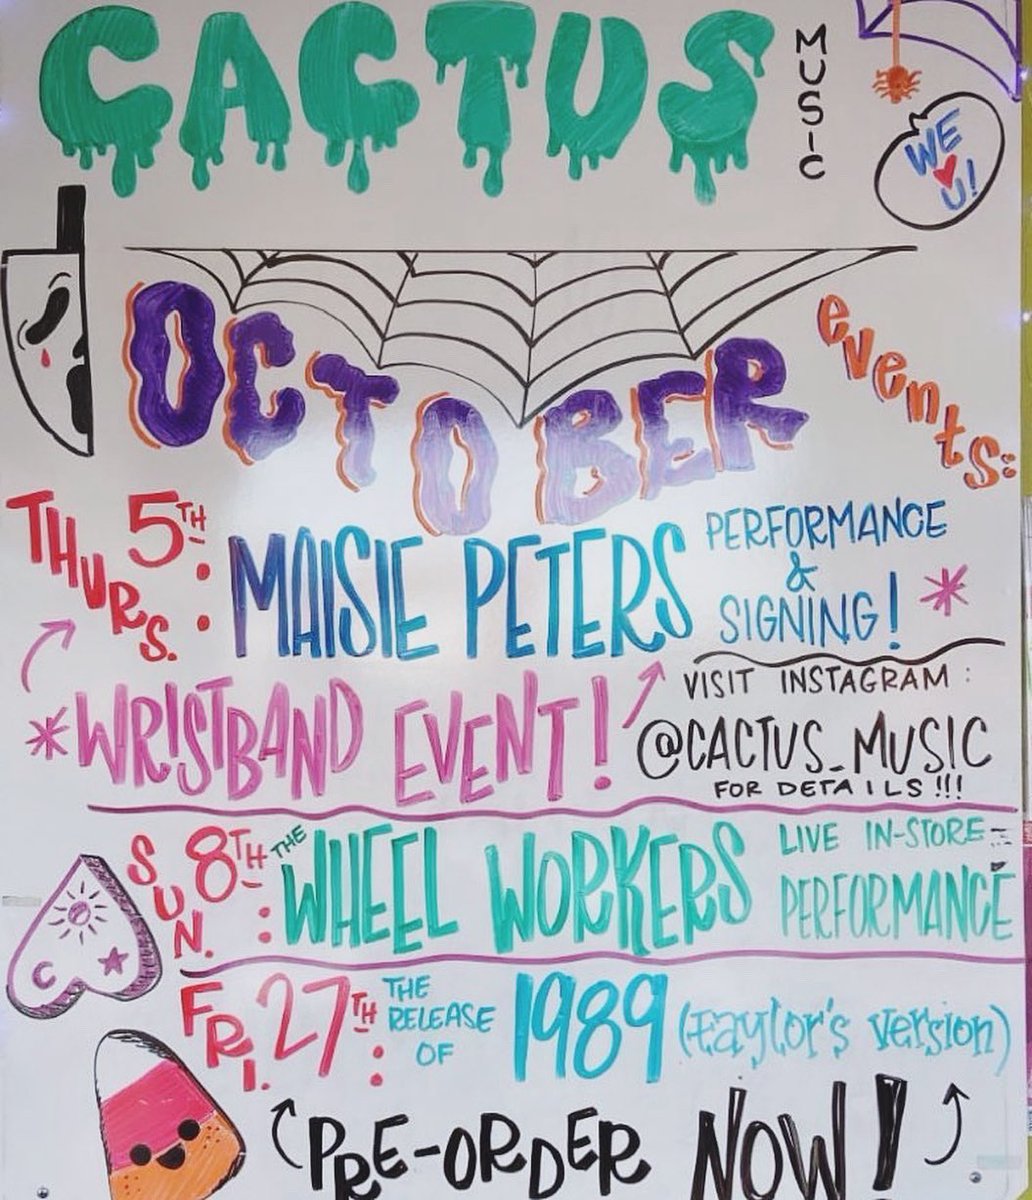 CACTUS MUSIC
WE ♥ U!
OCTOBER events:
THURS. 5TH: MAISIE PETERS PERFORMANCE & SIGNING! *
*WRISTBAND EVENT! VISIT INSTAGRAM:
@CACTUS_MUSIC
FOR DETAILS!!!
SUN. 8TH: THE WHEEL WORKERS LIVE IN-STORE PERFORMANCE
FRI. 27TH: THE RELEASE OF 1989 (Taylor's Version)
PRE-ORDER NOW!